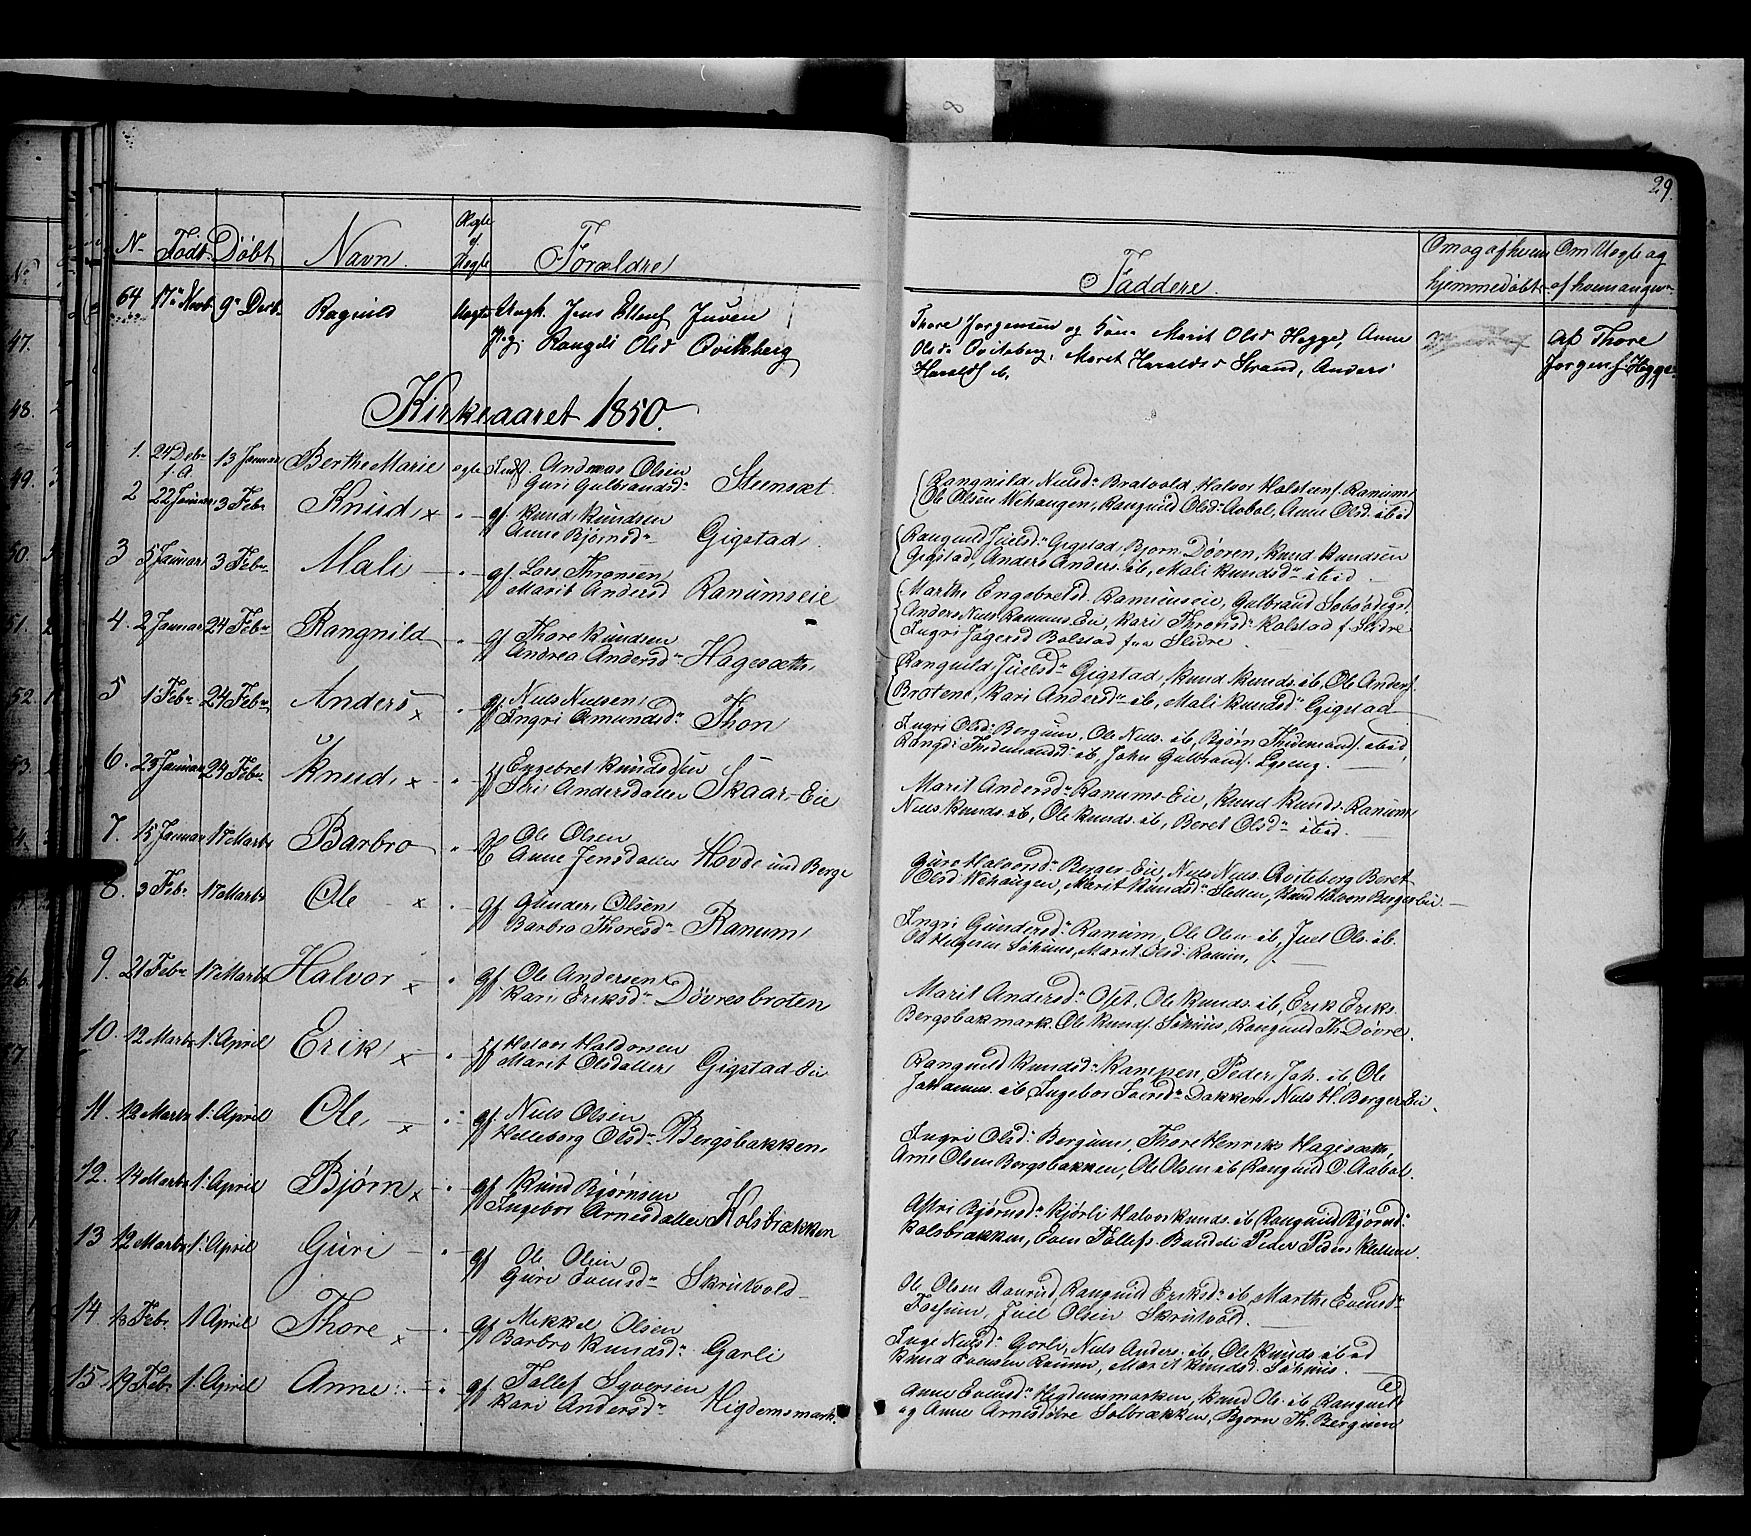 29.
N. Født Døbt Navn. Ægte el Uegte Forældre
Faddere. Om og af hvem hjemmedøbt Om Uegte og af hvem angiv.
64 17 Novb 9 Decb. Ragnild Uegte Ungk. Jens Ellefs Juven
Pig. Rangdi Olsd Qvitberg
Thore Jorgensen og Kone Marit Olsd Hegge, Anne
Olsd Qviteberg, Marit Haraldsd Strand, Anders
Haralds ib.
af Thore
Jorgens. Hegge
Kirkeaaret 1850.
1. 24 Deb. f. A 13 Januar Berthe Marie egte Indf. Andreas Olsen
Guri Gulbrandsd. Steensæt.
Rangnild Nielsd. Bratvold, Halvor Halstens. Ranum
Ole Olsen Wehaugen, Rangnid Olsd. Aabol, Anne Olsd. ibid
2 22 Januar 3 Feb. Knud x gf Knud Knudsen
Anne Bjørnsd. Gigstad.
Rangnid Juelsd. Gigstad, Bjørn Døvren, Knud Knudsen
Gigstad, Anders Anders. ib, Mali Knudsd. ibid
3 5 Januar 3 Feb. Mali gf. Lars Thronsen
Marit Andersd Ranumseie
Marthe Engebretsd. Ranumseie, Gulbrand
Anders Niels Ranums Eie, Kari Thronsd. Kolstad f. Slidre
Ingri Bolstad fra Slidre.
4. 2 Januar 24 Feb. Rangnild gf Thore Knudsen
Andrea Andersd. Hagesæth
Rangnild Juelsd. Gigstad, Knud Knuds. ib, Ole Anders.
Bratene, Kari Andersd. ib, Mali Knudsd. Gigstad
5 1 Feb. 24 Feb. Anders x gf Niels Nielsen
Ingri Amundsd. Thon
Ingri Olsd. Bergum, Ole Niels. ib, Bjørn Thidemans. ibid,
Rangdi Thidemansd. ib, John Gulbrands. Lyseng.
6. 23 Januar 24 Feb. Knud x gf Engebret Knudsøn
Siri Andersdatter Skaar-Eie
Marit Andersd. Ranums-Eie, Knud Knuds. Ranum
Niels Knuds. ib, Ole Knuds. ib, Beret Olsd. ibid.
7. 15 Januar 17 Marts Barbro gf Ole Olsen
Anne Jensdatter Hovde und Berge
Guri Halvorsd. Berges-Eie, Niels Niels. Qviteberg Beret
Olsd Wehaugen, Marit Knudsd. Sletten, Knud Halvors Berger Eie.
8. 3 Feb. 17 Marts Ole x gf Gunder Olsen
Barbro Thoresd. Ranum
Ingri Gundersd. Ranum, Ole Olsen ib, Juel Ols. ib.
Od Helgesen Søhuus, Marit Olsd. Ranum,
9. 21 Feb. 17 Marts Halvor x gf Ole Andersen
Kari Eriksd. Døvresbroten
Marit Andersd. Ofet, Ole Knuds. ib, Erik Eriks.
Bergsbakmark. Ole Knuds. Søhuus, Rangnid Th. Døvre.
10. 12 Marts 1. April Erik x gf Halvor Haldorsen
Marit Olsdatter Gigstad-Eie
Rangnid Knudsd. Kampen, Peder Joh. ib Ole
Johannes. ib, Ingebor Iversd. Bakken, Niels H. Berger Eie.
11. 12 Marts 1. April Ole x gf Niels Olsen
Helleborg Olsd. Bergsbakken
Ingri Olsd. Bergum, Thore Henriks Hagesæth,
Arne Olsen Bergsbakken, Ole Olsen ib, Rangnid O. Aabol.
12. 14 Marts 1. April Bjørn x gf Knud Bjørnsen
Ingebor Arnesdatter Kolsbrækken
Astri Bjørnsd. Kjørli Halvor Knuds. ib, Rangnid Bjørnsd.
Kolsbrækken, Even Tollefs. Peder Peders
13 12 Marts 1. April Guri gf Ole Olsen
Guri Evensd. Skrutvold
Ole Olsen Rangnid Eriksd. ib, Marthe Evensd.
Fossum, Juel Olsen Skrutvold.
14 13 Feb. 1. April Thore x gf Mikkel Olsen
Barbro Knudsd. Garli
Inge Nielsd. Gorli, Niels Anders. ib, Ole Knuds ibid
Knud Evensen Ranum, Marit Knudsd. Søhuus.
15 19 Feb. 1. April Anne gf Tollef Syversen
Kari Andersd. Higdemsmark.
Anne Evensd. Higdemsmarken, Knud Ols. ib Rangnild
og Anne Arnesdøtre Solbrækken, Bjørn Th. Bergum